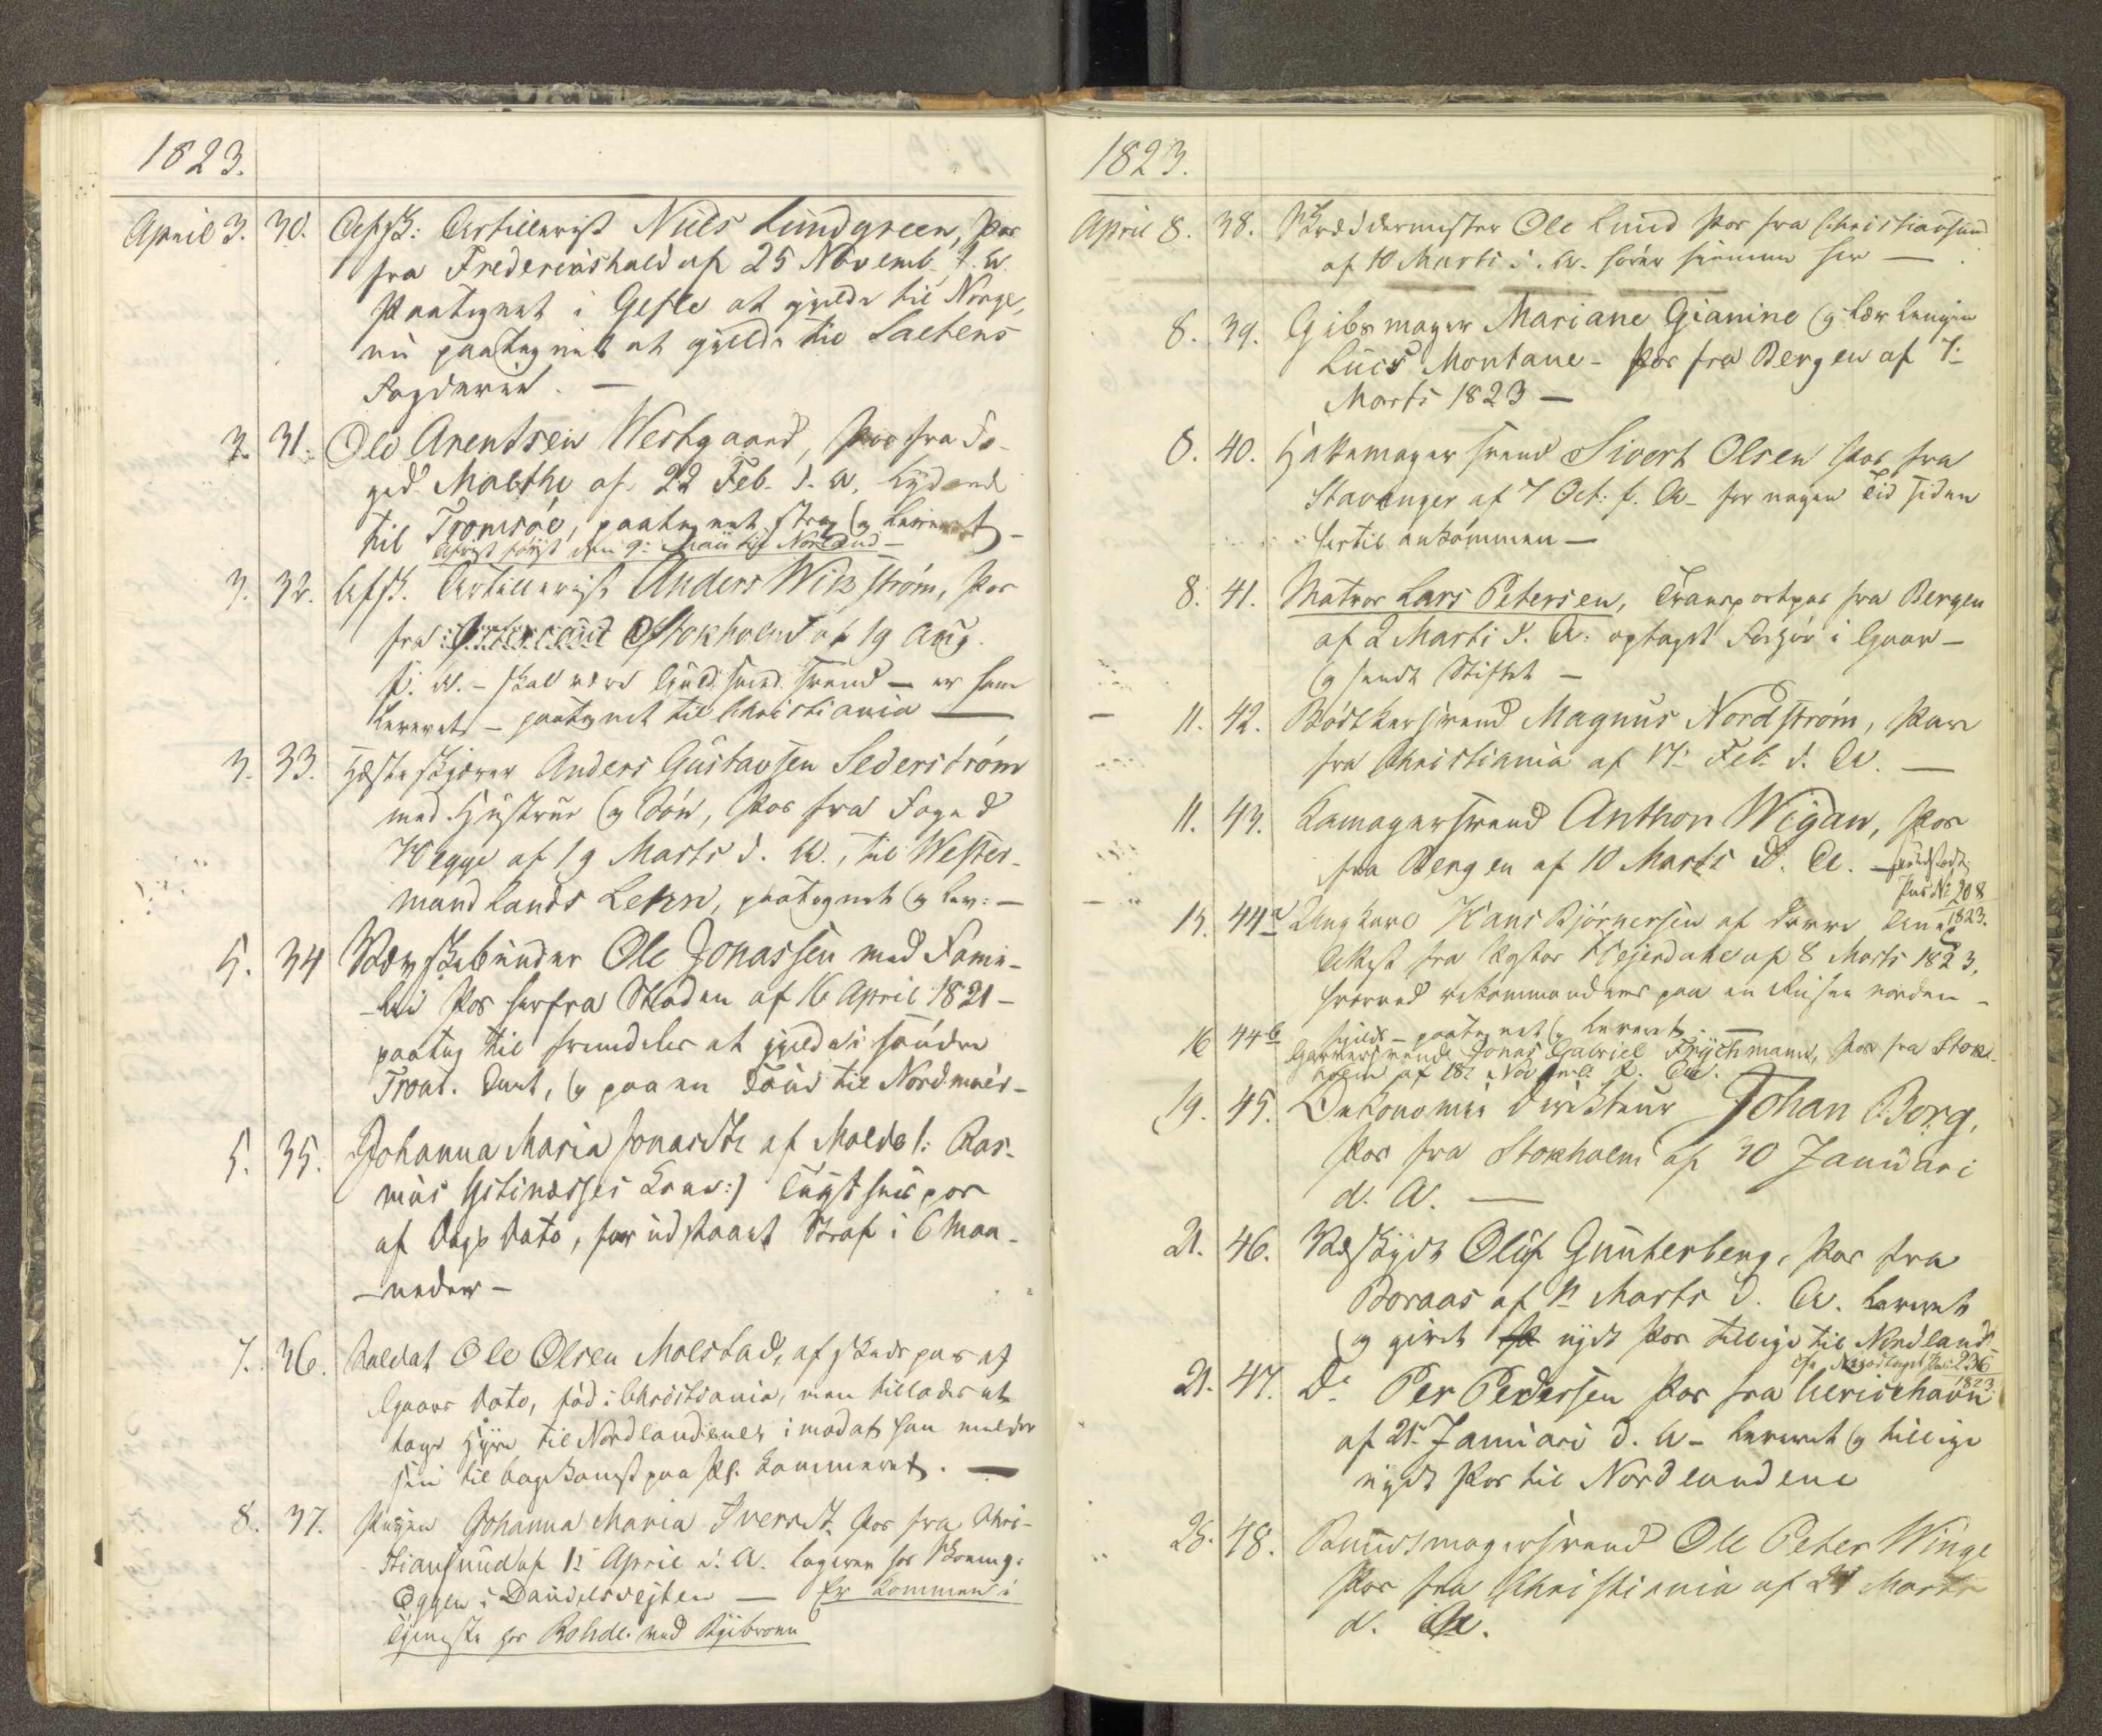 1823.
April 3. 30. Afsk: Artillerist Niels Lundgreen, Pas
fra Frederikshald af 25 Novemb. f. A.
Paategnet i Gefle at gjelde til Norge,
nu paategnet at gjelde til Saltens
Fogderie. —
3. 31. Ole Arentsen Westgaard, Pas fra Fo-
ged Malthe af 22 Feb. d. A. lydende
til Tromsøe, paategnet strax og leveret —
Afrejst den 9: Maii til Nordland —
3. 32. Afsk. Artillerist Anders Wikstrøm, Pas
fra Stokholm af 19 Aug.
f. A. — skal være Guldsmed Svend — er ham
leveret — paategnet til Christiania —
3. 33. Hesteskjærer Anders Gustavsen Sederstrøm
med Hustrue og Søn, Pas fra Foged
Wegge af 19 Marts d. A., til Wester-
mandlands Lehn, paategnet og lev: —
5. 34 Ole Jonassen med Fami-
-lie Pas herfra Staden af 16 April 1821 —
paateg til fremdeles at gjelde i søndre
Tront. Amt, og paa en Tour til Nordmøer —
5. 35. Johanna Maria Jonasdtr af Molde /: Ras-
mus Kone :/ Tugthuuspas
af Dags Dato, har udstaaet Straf i 6 Maa-
-neder —
7. 36. Soldat Ole Olsen Molstad, afskeds pas af
Gaars Dato, fød i Christiania, man tillades at
tage Hyre til Nordlandene, imod at han melder
sin tilbagekomst paa Pl. Kammeret. —
8. 37. Pigen Johanna Maria Iversdt. Pas fra Chri-
stiansund af 1: April d. A. logerer hos
Eggen i — Er kommen i
Tjeneste hos Rohde ved Bybroen
1823.
April 8. 38. Skreddermester Ole Lund Pas fra Christiansund
af 10 Marts d. A. hører hiemme her —
8. 39. Gibsmager Mariane Gianine og
Luis Montane — Pas fra Bergen af 7:
Marts 1823 —
8. 40. Hattemager Svend Sivert Olsen Pas fra
Stavanger af 7 Oct: f. A — for nogen Tid siden
hertil ankommen —
8. 41. Matros Lars Petersen, Transportpas fra Bergen
af 2 Marts d. A: optaget Forhør i Gaar —
og sendt Stiftet —
11. 42. Bødkersvend Magnus Nordstrøm, Pas
fra Christiania af 17: Feb. d. A. —
11. 43. Kamagersvend Anthon Wigan, Pas
fra Bergen af 10 Marts d. A. —
Pas № 208
1823.
15. 44a Ungkarl Hans Bjørnersen af
Attest fra Pastor Hejerdahl af 8 Marts 1823,
hvorved rekommanderes paa en Reise norden —
hjelds — paategnet og leveret —
16 44b Garversvend Jonas Gabriel Frychmann, Pas fra Stok-
holm af 18: Novemb. f. A.
19. 45. Oekonomie Directeur Johan Borg,
Pas fra Stokholm af 30 Januari
d. A. —
21. 46. Oluf Gunterberg, Pas fra
Boraas af Marts d. A. leveret
og givet nyt Pas tillige til Nordland —
236
1823
21. 47. Do Per Pedersen Pas fra Ulricehavn
af 25: Januari d. A — leveret og tillige
nyt Pas til Nordlandene
25. 48. Bundtmagersvend Ole Peter Winge
Pas fra Christiania af 21 Marts
d. A.